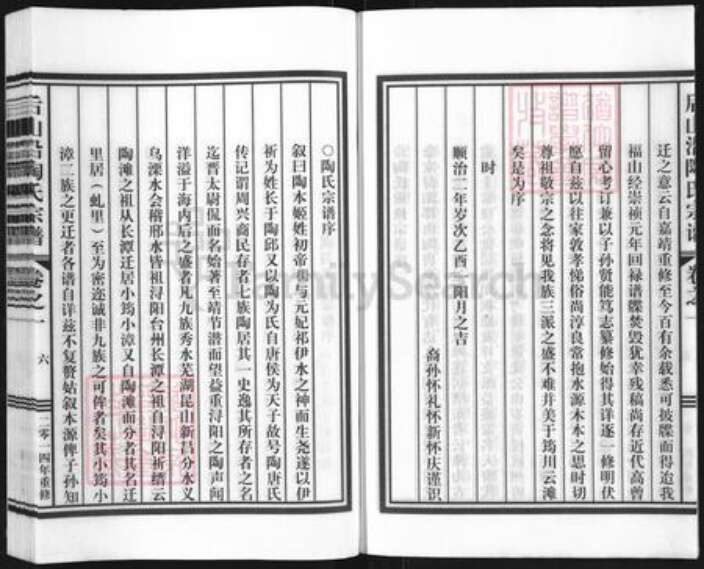 迁之意云自嘉靖重修至今百有余载悉可披牒而得迨我
福山经崇祯元年回禄谱牒焚毁犹幸残稿尚存近代高曾
留心考订兼以子孙贤能笃志纂修始得其详逐一修明伏
愿自兹以往家敦孝悌俗尚淳良常抱水源木本之思时切
尊祖敬宗之念将见我族三派之盛不难并美于筠川云滩
矣是为序
时
顺治二年岁次乙酉 阳月之吉
裔孙怀礼怀新怀庆谨识
后山沿陶氏宗谱
卷之一
○陶氏宗谱序
叙曰陶本姬姓初帝喾与元妃祁伊水之神而生尧遂以伊
祈为姓长于陶邱又以陶为氏自唐侯为天子故号陶唐氏
传记谓周兴商民存者七族陶居其一史逸其所存者之名
迄晋太尉侃而名始著至靖节潜而望益重浔阳之陶声闻
洋溢于海内后之盛者凡九族秀水芜湖昆山新昌分水义
乌溧水会稽邢水皆祖浔阳台州长潭之祖自浔阳祈缙云
陶滩之祖从长潭迁居小筠小漳又自陶滩而分者其名迁
里居（虬里）至为密迩诚非九族之可俾者矣其小筠小
漳二族之更迁者各谱自详兹不复赘姑叙本源俾子孙知
后山沿陶氏宗谱
卷之一
六
二零一四年重修
FamilySearch